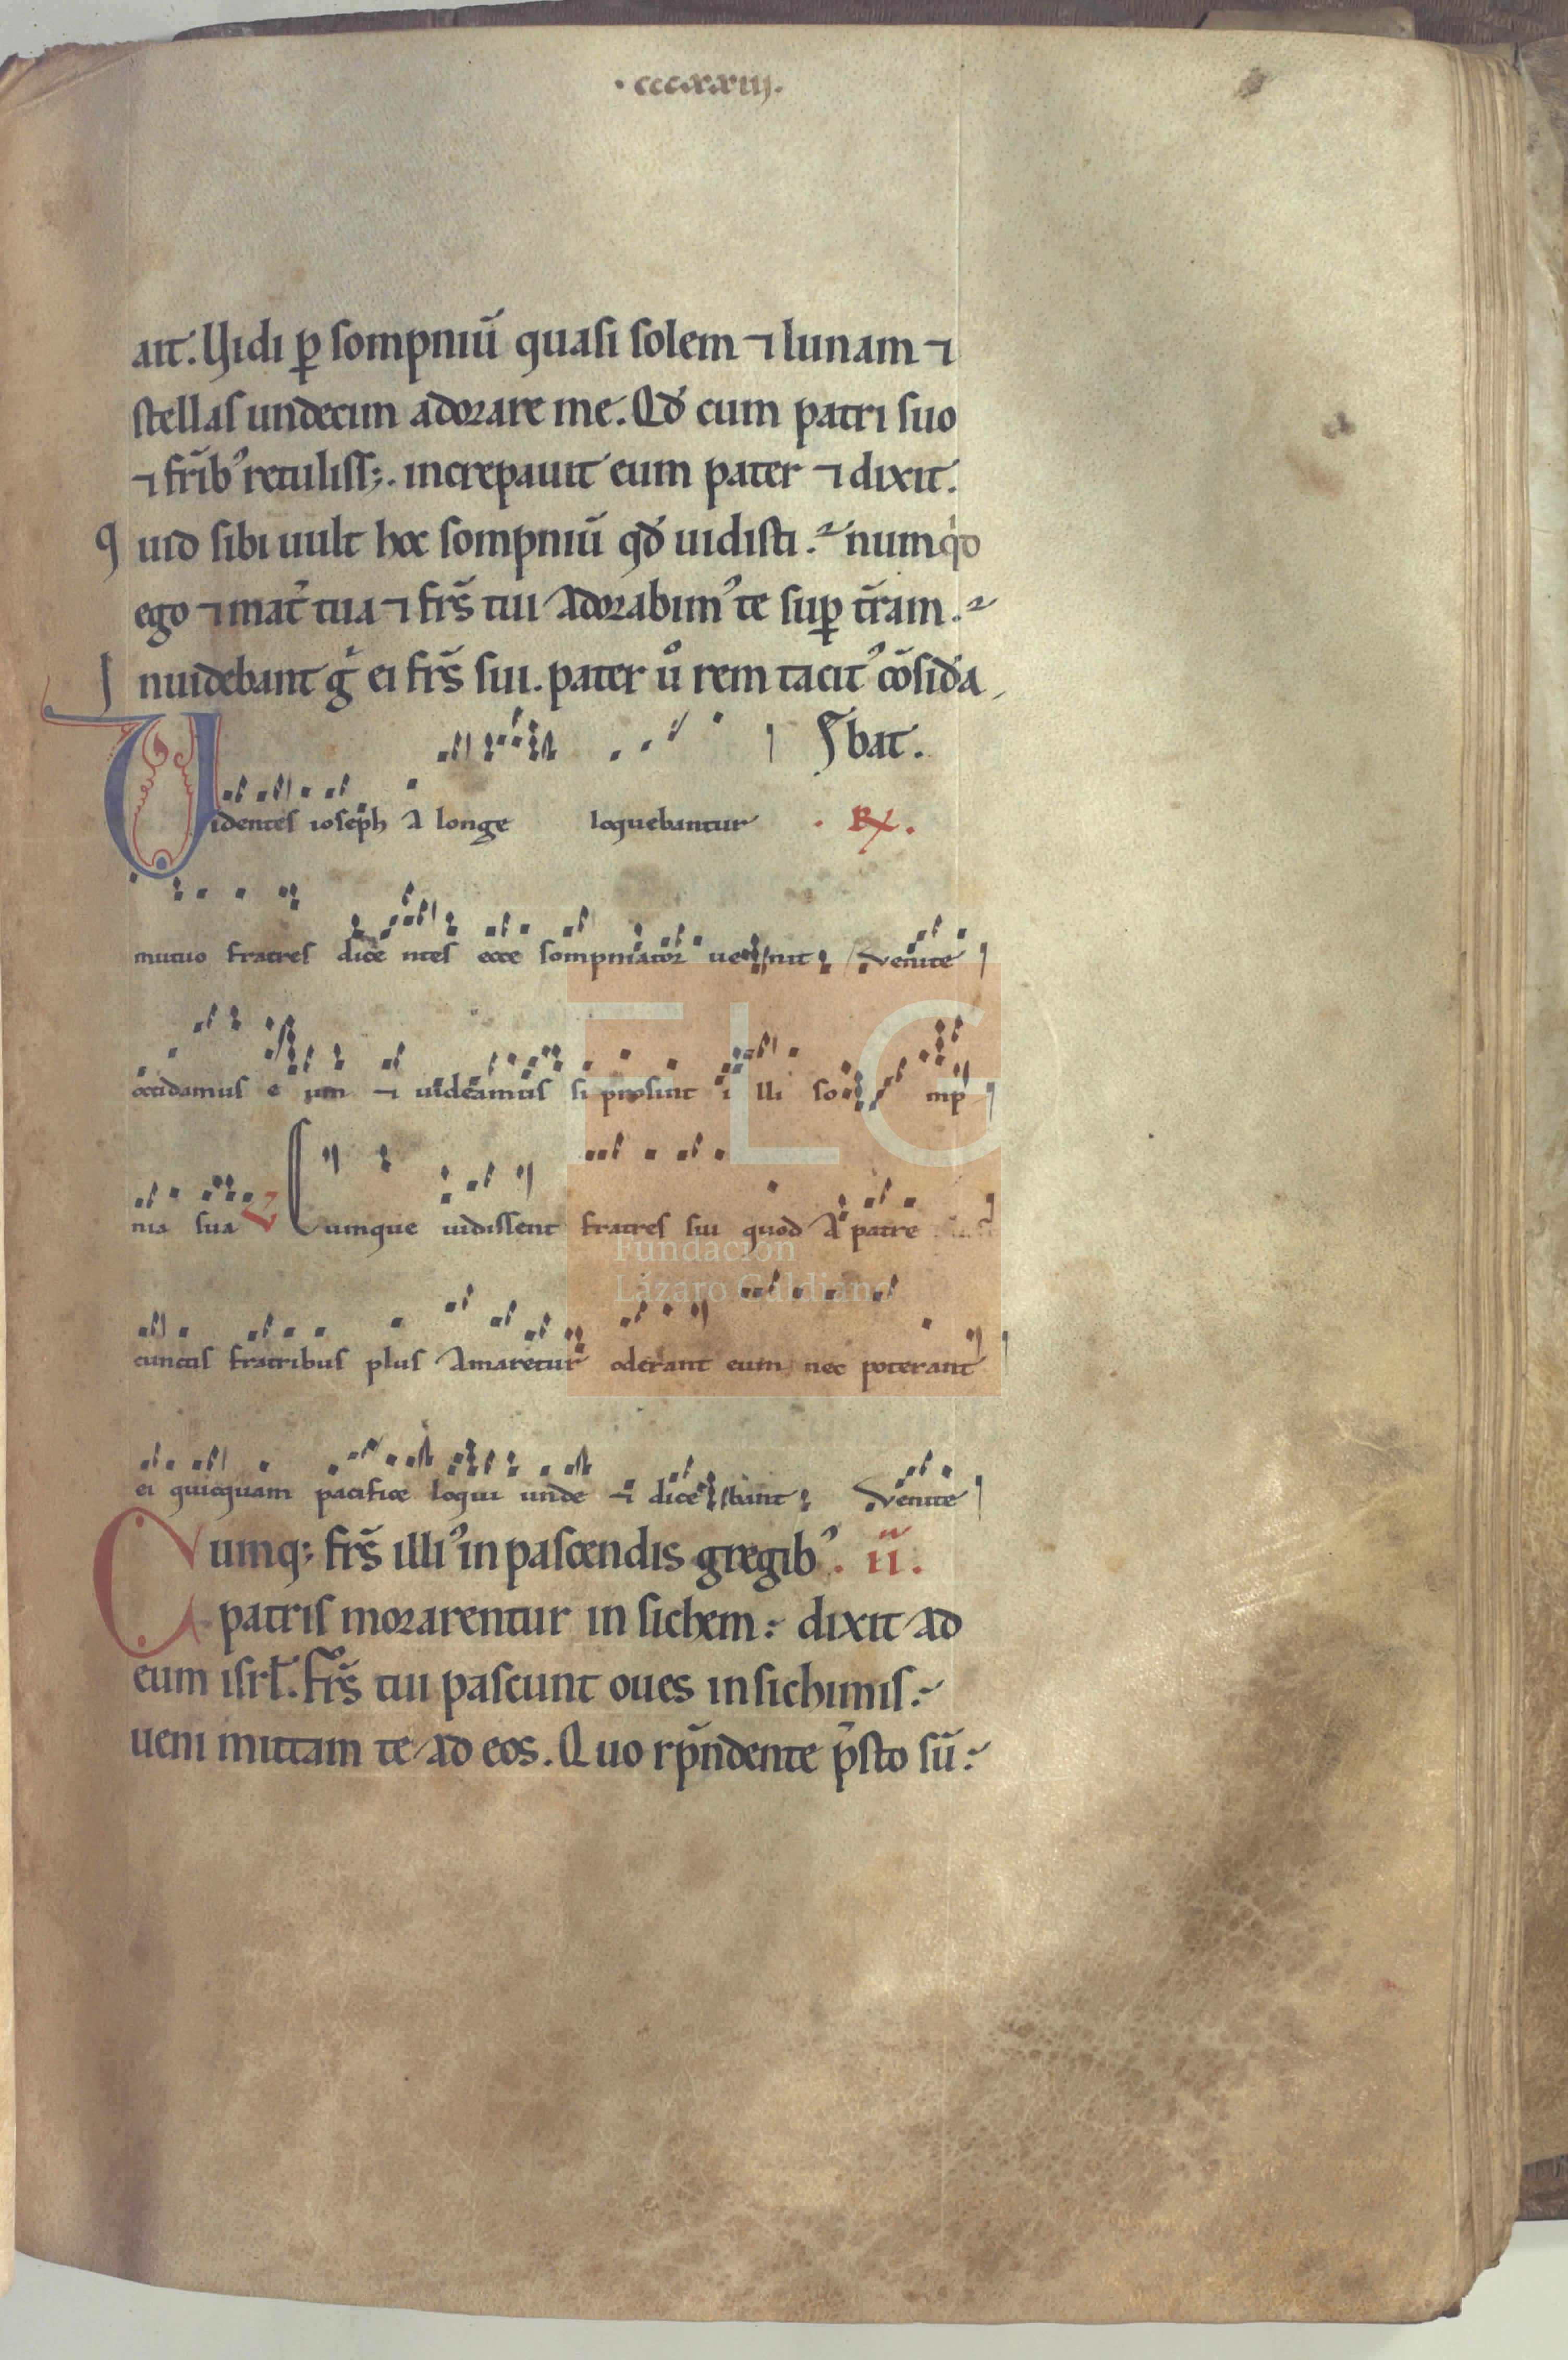 ·cccxxiij.
ait. Vidi ꝑ sompniū quasi solem ⁊ lunam ⁊
stellas undecim adorare me. Qđ cum patri suo
⁊ fr̄ibꝰ retuliss;. increpauit eum pater ⁊ dixit.
quid sibi uult hoc sompniū qđ uidisti. numqͥd
ego ⁊ mat̉ tua ⁊ fr̄s tui adorabimꝰ te suꝑ tr̄am.
Inuidebant gͥ ei fr̄s sui. pater uͦ rem tacitꝰ cōsid̉a
bat.
Videntes ioseph a longe loquebantur . R̸.
mutuo fratres dice ntes ecce sompniator ue nit Venite
occidamus e um ⁊ uideamus si prosint i lli so mp
nia sua V Cumque uidissent fratres sui quod a patre
cunctis fratribus plus amaretur oderant eum nec poterant
ei quicquam pacifice loqui unde ⁊ dice bant Venite
Cumq; fr̄s illiꝰ in pascendis gregibꝰ. ii.
patris morarentur in sichem: dixit ad
eum isrł. Fr̄s tui pascunt oues in sichimis:
ueni mittam te ad eos. Quo rp̄ndente p̄sto sū:
FLG
Fundación
Lázaro Galdiano